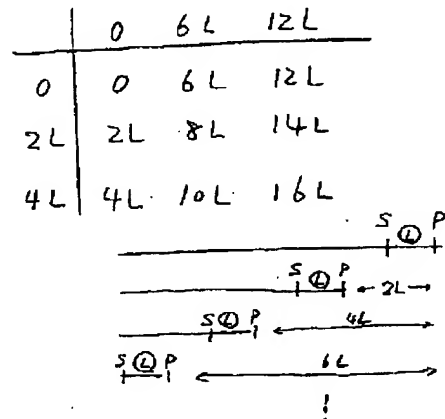 0 6L 12L
0 0 6L 12L
2L 2L 8L 14L
4L 4L 10L 16L
S L P
S L P 2L
S L P 4L
S L P 6L